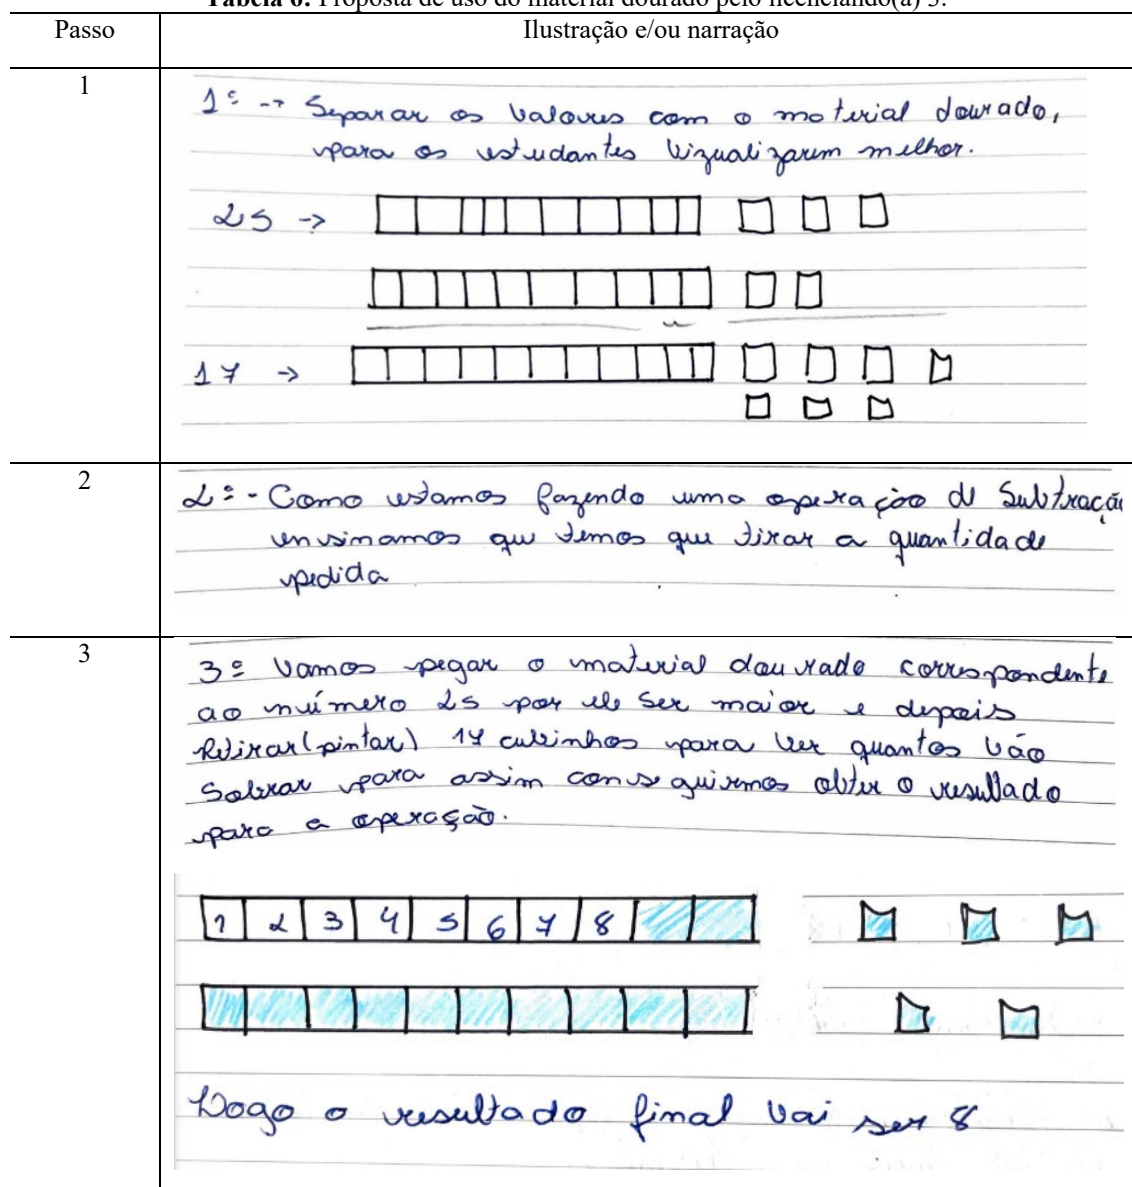 Tabela 6: Proposta de uso do material dourado pelo licenciando(a) 3.
Passo Ilustração e/ou narração
1
1º -> Separar os valores com o material dourado,
para os estudantes vizualizarem melhor.
25 ->
17 ->
2
2º - Como estamos fazendo uma operação de Subtração
ensinamos que temos que tirar a quantidade
pedida
3
3º Vamos pegar o material dourado correspondente
ao número 25 por ele ser maior e depois
Retirar (pintar) 17 cubinhos para ver quantos vão
Sobrar para assim conseguirmos obter o resultado
para a operação.
1 2 3 4 5 6 7 8
Logo o resultado final vai ser 8